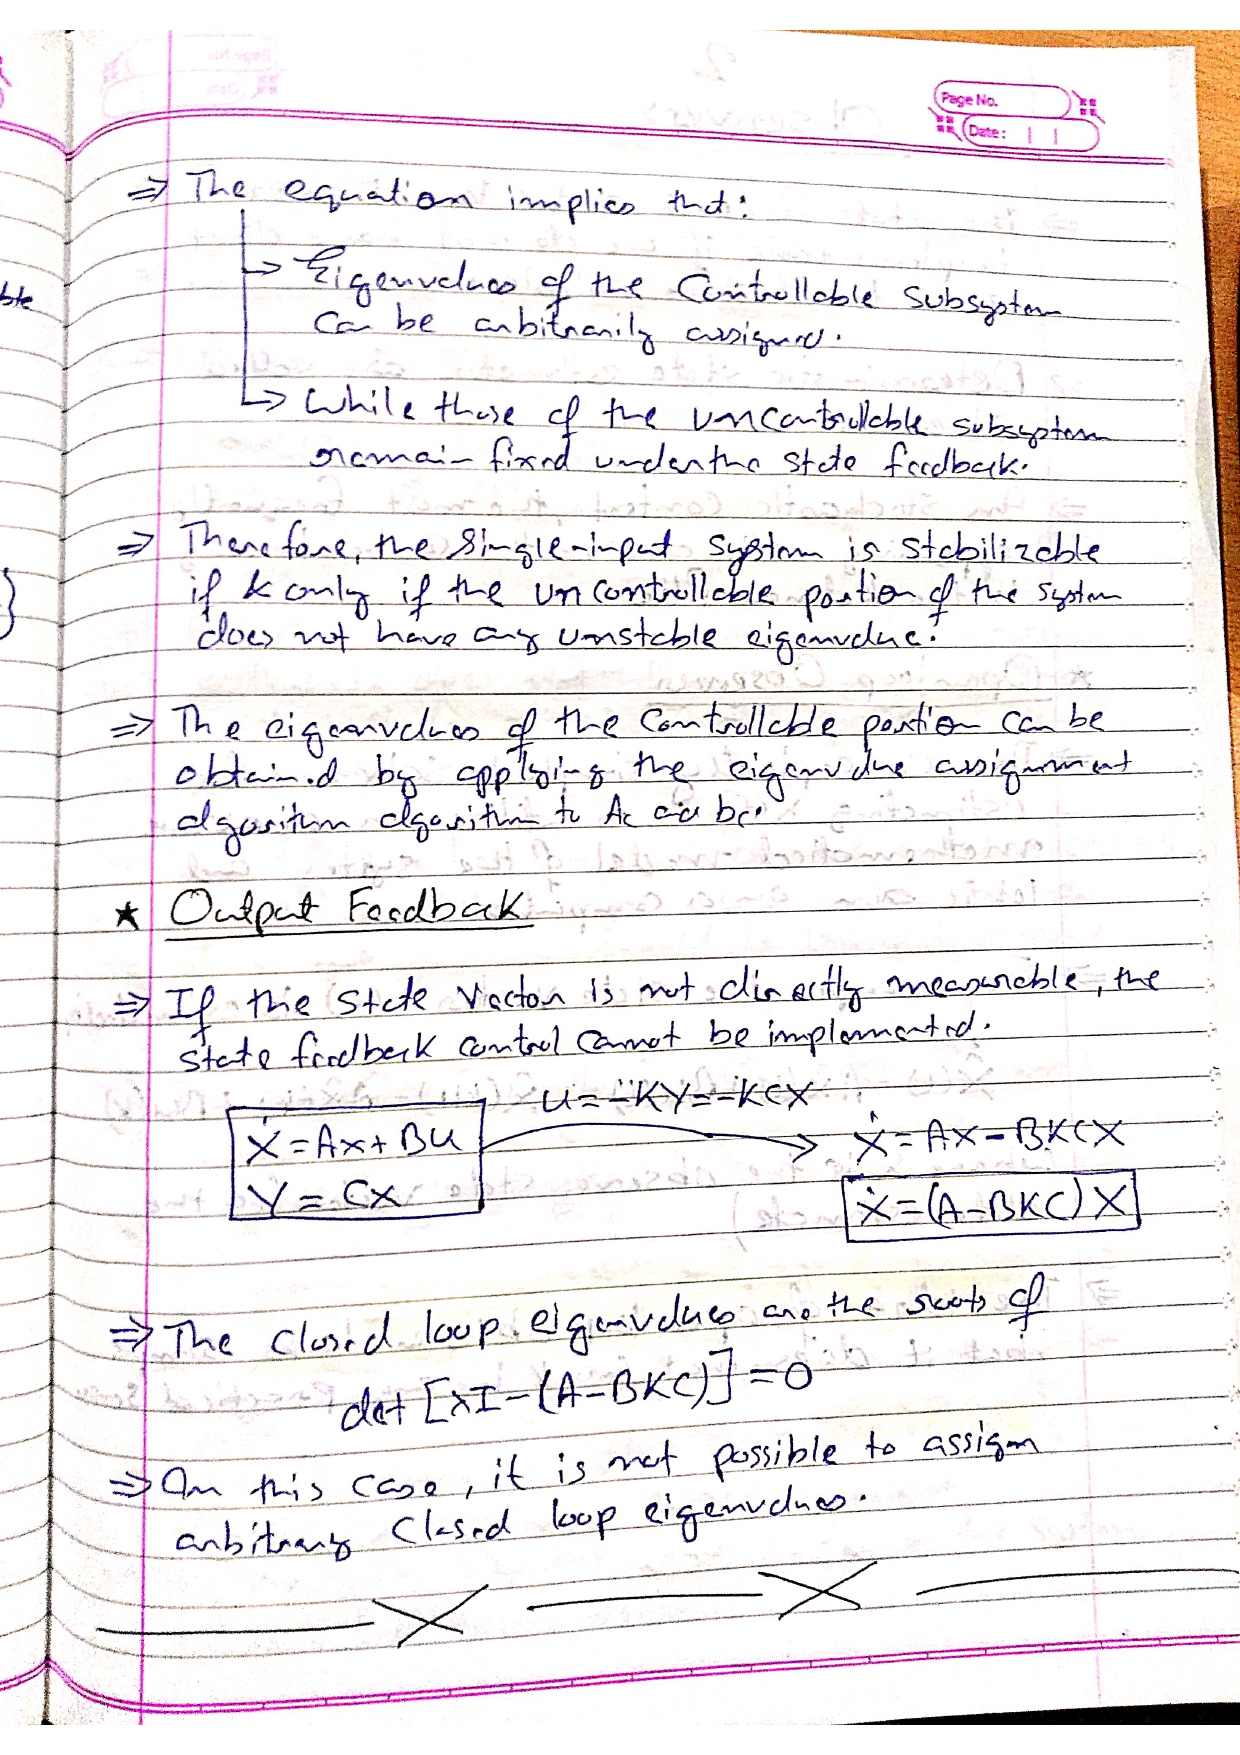 Page No.
Date:
⇒ The equation implies that:
↳ Eigenvalues of the Controllable Subsystem
Can be arbitrarily assigned.
↳ While those of the uncontrollable subsystem
remain fixed under the state feedback.
⇒ Therefore, the Single-input system is stabilizable
if & only if the uncontrollable portion of the system
does not have any unstable eigenvalue.
⇒ The eigenvalues of the controllable portion can be
obtained by applying the eigenvalue assignment
algorithm algorithm to Ac and bc.
ble
}
★ Output Feedback
⇒ If the State Vector is not directly measurable, the
state feedback control cannot be implemented.
U = -KY = -KCX
Ẋ = AX + BU
Y = CX
Ẋ = AX - BKCX
Ẋ = (A - BKC) X
⇒ The Closed loop eigenvalues are the roots of
det [λI - (A - BKC)] = 0
⇒ In this case, it is not possible to assign
arbitrary Closed loop eigenvalues.